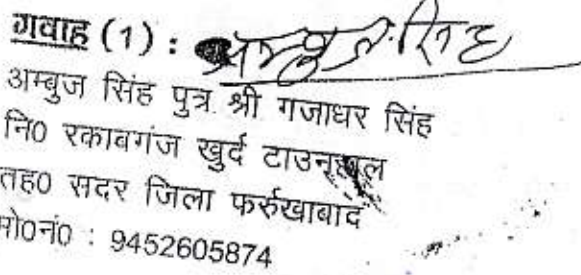 गवाह (1) : अम्बुज सिंह
अम्बुज सिंह पुत्र श्री गजाधर सिंह
नि0 रकाबगंज खुर्द टाउनहाल
तह0 सदर जिला फर्रुखाबाद
मो0नं0 : 9452605874